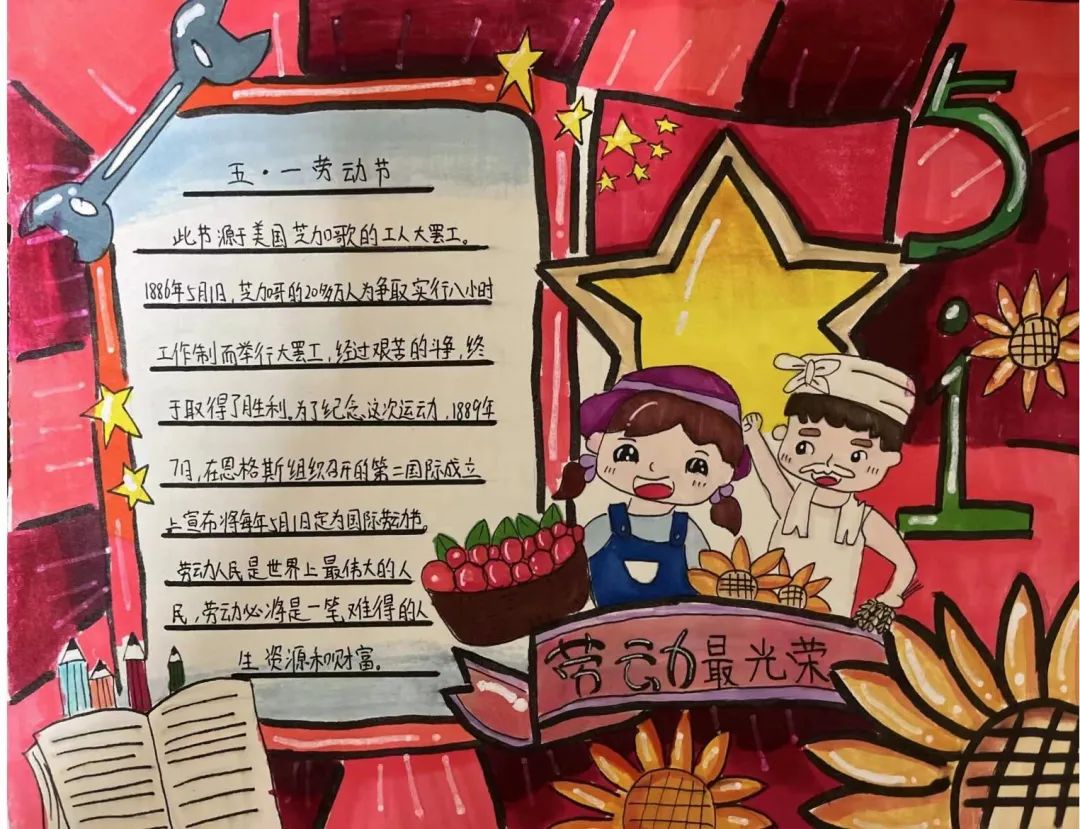 五·一劳动节
此节源于美国芝加歌的工人大罢工。
1886年5月1日，芝加哥的20多万人为争取实行八小时
工作制而举行大罢工，经过艰苦的斗争，终
于取得了胜利。为了纪念这次运动，1889年
7月，在恩格斯组织召开的第二国际成立
上宣布将每年5月1日定为国际劳动节。
劳动人民是世界上最伟大的人
民，劳动必将是一笔难得的人
生资源和财富。
5·1
劳动最光荣